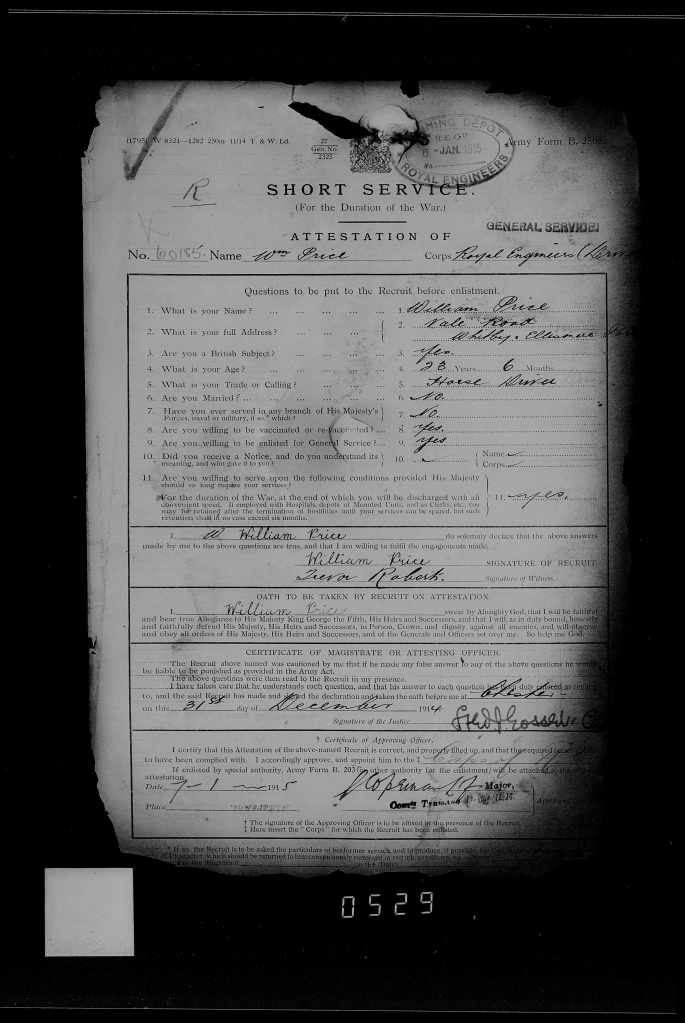 (1793) W 8321—1282 250m 11/14 T. & W. Ld.
27
Gen. No.
2323
Army Form B.
TRAINING DEPOT
JAN. 1915
ROYAL ENGINEERS
R
SHORT SERVICE.
(For the Duration of the War.)
GENERAL SERVICE
ATTESTATION OF
No. 60185. Name Wm Price Corps Royal Engineers
Questions to be put to the Recruit before enlistment.
1. What is your Name? 1. William Price
2. What is your full Address? 2. Vale Road
Whitby.
3. Are you a British Subject? 3. yes.
4. What is your Age? 4. 23 Years 6 Months
5. What is your Trade or Calling? 5. Horse Driver
6. Are you Married? 6. No.
7. Have you ever served in any branch of His Majesty's
Forces, naval or military, if so,* which? 7. No.
8. Are you willing to be vaccinated or re-vaccinated? 8. Yes.
9. Are you willing to be enlisted for General Service? 9. yes
10. Did you receive a Notice, and do you understand its
meaning, and who gave it to you? 10. Name
Corps
11. Are you willing to serve upon the following conditions provided His Majesty
should so long require your services?
For the duration of the War, at the end of which you will be discharged with all
convenient speed. If employed with Hospitals, depots of Mounted Units, and as Clerks, etc., you
may be retained after the termination of hostilities until your services can be spared, but such
retention shall in no case exceed six months. 11. yes.
I, W William Price do solemnly declare that the above answers
made by me to the above questions are true, and that I am willing to fulfil the engagements made.
William Price SIGNATURE OF RECRUIT.
Trevor Roberts. Signature of Witness.
OATH TO BE TAKEN BY RECRUIT ON ATTESTATION.
I, William Price swear by Almighty God, that I will be faithful
and bear true Allegiance to His Majesty King George the Fifth, His Heirs and Successors, and that I will, as in duty bound, honestly
and faithfully defend His Majesty, His Heirs and Successors, in Person, Crown, and dignity against all enemies, and will observe
and obey all orders of His Majesty, His Heirs and Successors, and of the Generals and Officers set over me. So help me God.
CERTIFICATE OF MAGISTRATE OR ATTESTING OFFICER.
The Recruit above named was cautioned by me that if he made any false answer to any of the above questions he would
be liable to be punished as provided in the Army Act.
The above questions were then read to the Recruit in my presence.
I have taken care that he understands each question, and that his answer to each question has been duly entered as replied
to, and the said Recruit has made and signed the declaration and taken the oath before me at Chester
on this 31st day of December 1914
Signature of the Justice
† Certificate of Approving Officer.
I certify that this Attestation of the above-named Recruit is correct, and properly filled up, and that the required
to have been complied with. I accordingly approve, and appoint him to the ‡ Corps of
If enlisted by special authority, Army Form B. 203 (or other authority for the enlistment) will be attached to the
attestation.
Date 7-1- 1915 Major,
Place
† The signature of the Approving Officer is to be affixed in the presence of the Recruit.
‡ Here insert the "Corps" for which the Recruit has been enlisted.
* If so, the Recruit is to be asked the particulars of his former service, and to produce, if possible, his
0529